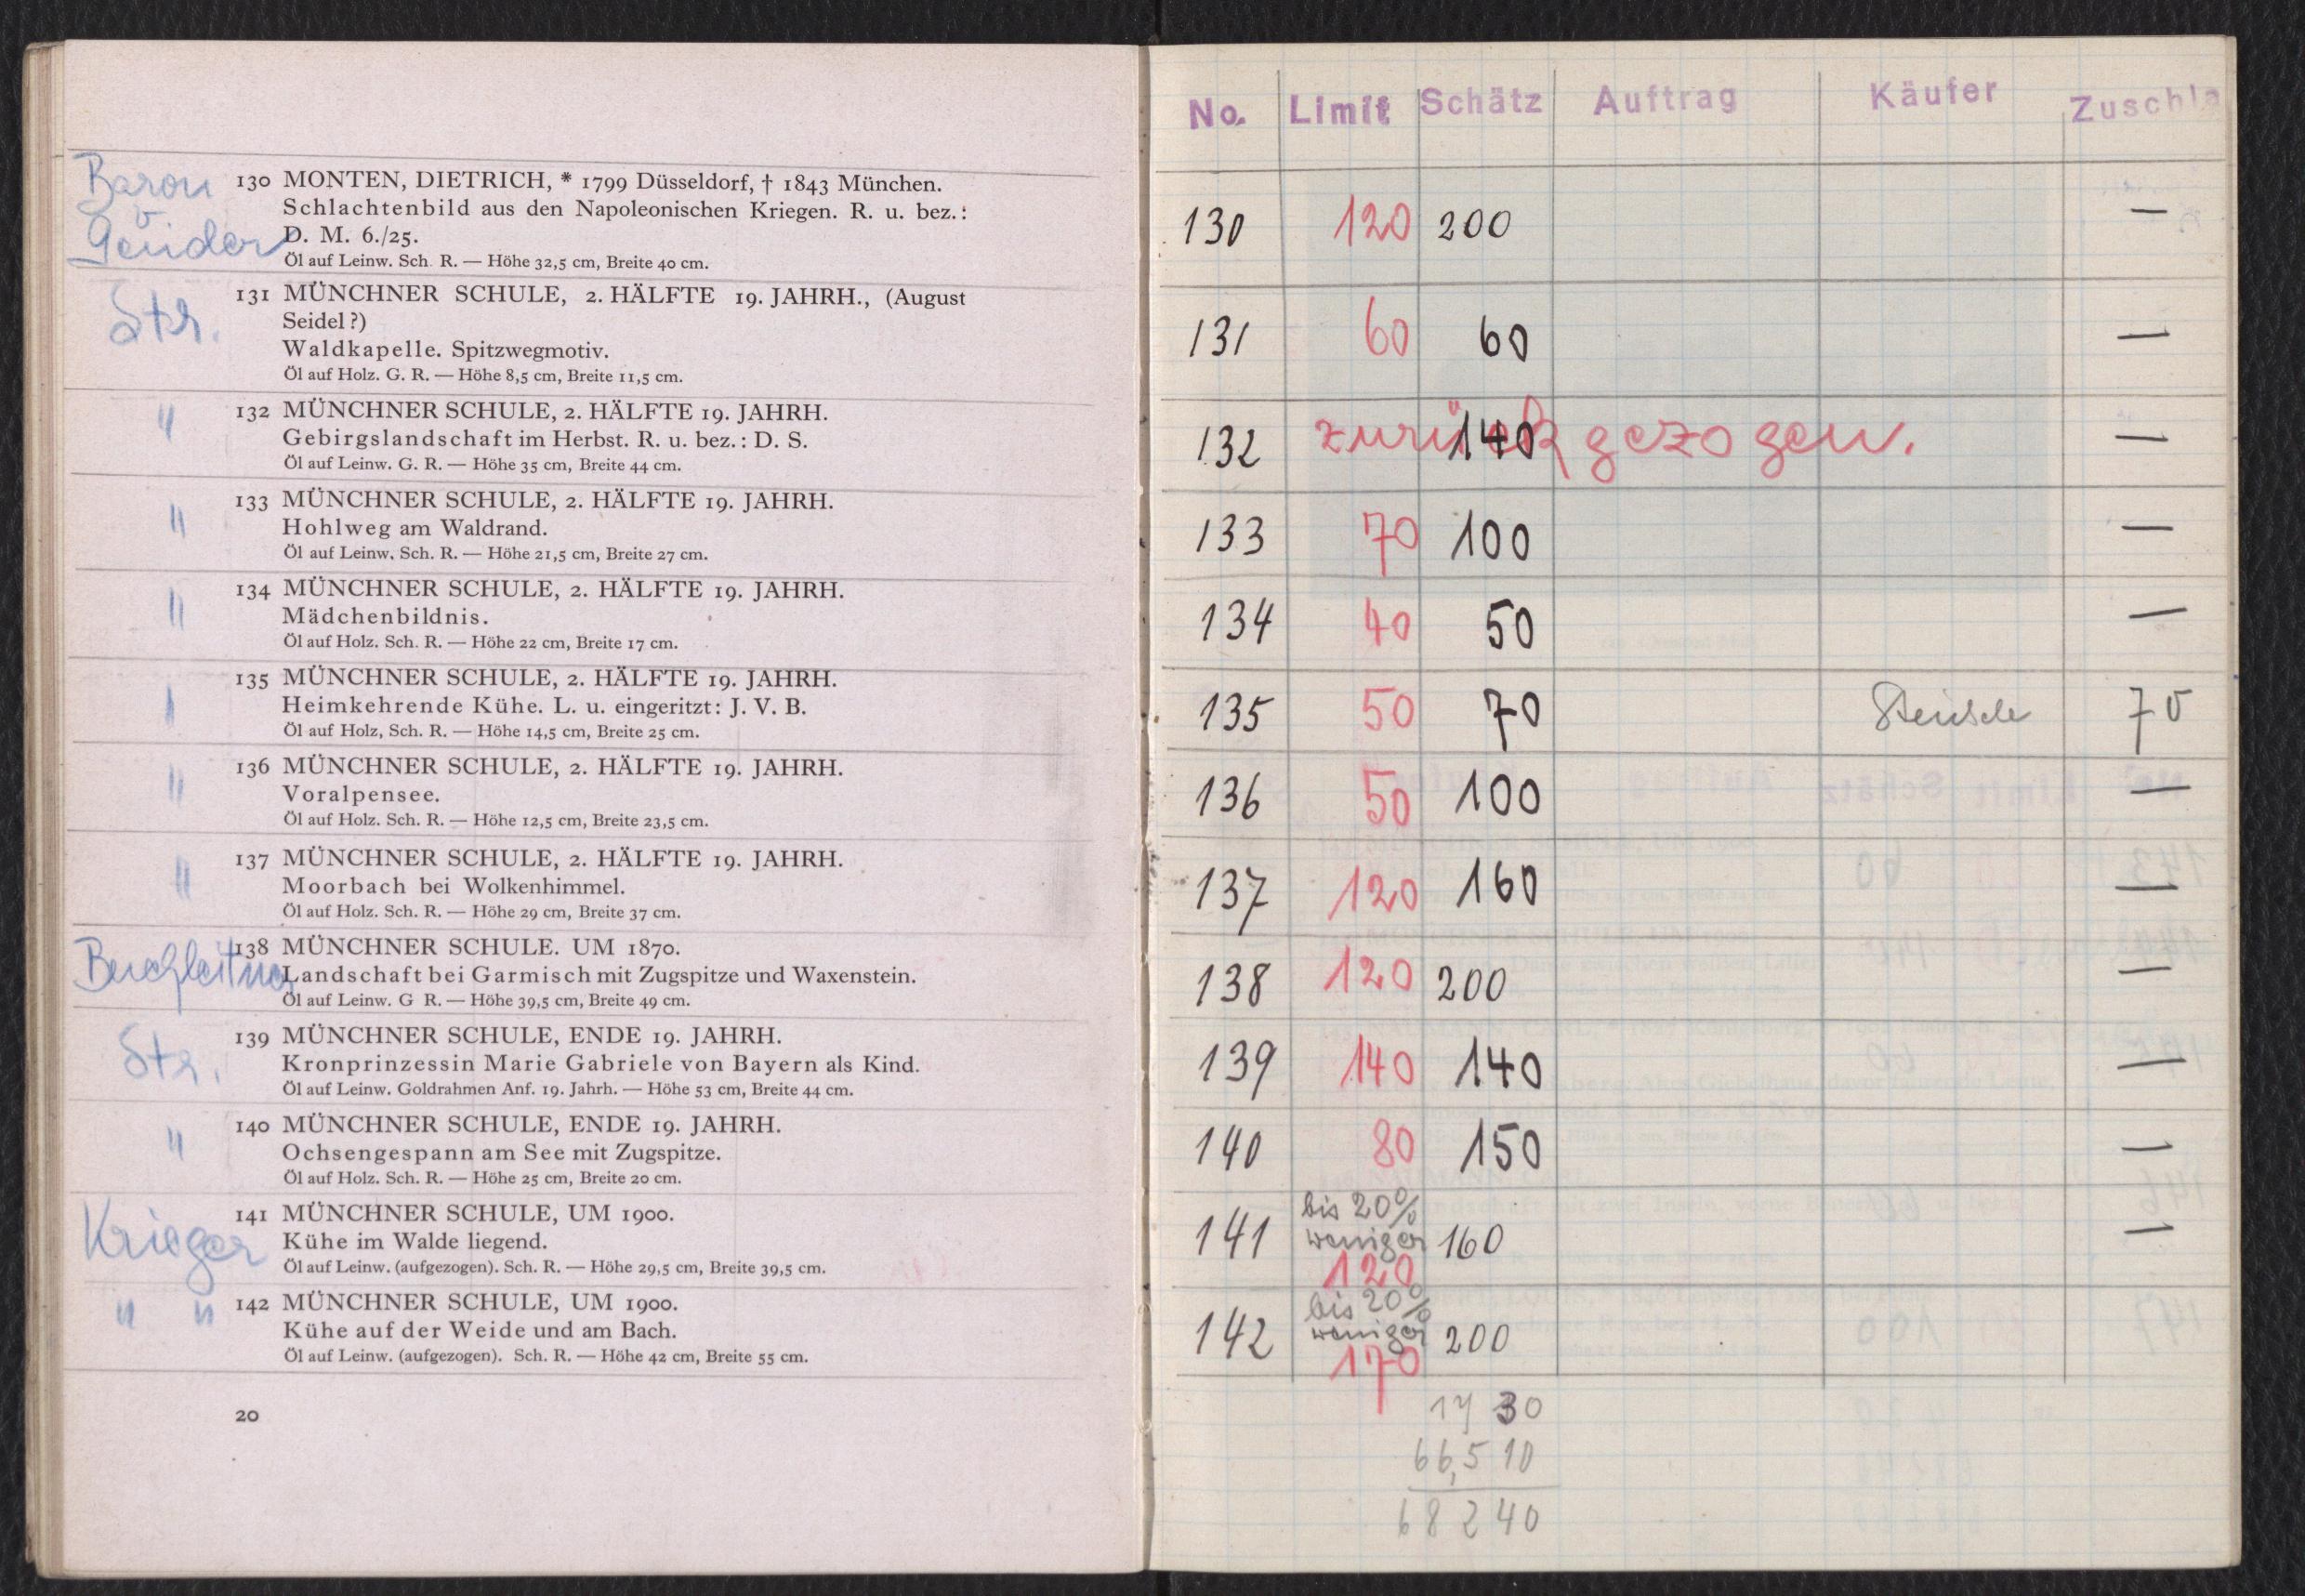 Baron
130 MONTEN, DIETRICH, * 1799 Düsseldorf, † 1843 München.
Schlachtenbild aus den Napoleonischen Kriegen. R. u. bez.:
D. M. 6./25.
Öl auf Leinw. Sch. R. — Höhe 32,5 cm, Breite 40 cm.
Str.
131 MÜNCHNER SCHULE, 2. HÄLFTE 19. JAHRH., (August
Seidel?)
Waldkapelle. Spitzwegmotiv.
Öl auf Holz. G. R. — Höhe 8,5 cm, Breite 11,5 cm.
" 132 MÜNCHNER SCHULE, 2. HÄLFTE 19. JAHRH.
Gebirgslandschaft im Herbst. R. u. bez.: D. S.
Öl auf Leinw. G. R. — Höhe 35 cm, Breite 44 cm.
" 133 MÜNCHNER SCHULE, 2. HÄLFTE 19. JAHRH.
Hohlweg am Waldrand.
Öl auf Leinw. Sch. R. — Höhe 21,5 cm, Breite 27 cm.
" 134 MÜNCHNER SCHULE, 2. HÄLFTE 19. JAHRH.
Mädchenbildnis.
Öl auf Holz. Sch. R. — Höhe 22 cm, Breite 17 cm.
" 135 MÜNCHNER SCHULE, 2. HÄLFTE 19. JAHRH.
Heimkehrende Kühe. L. u. eingeritzt: J. V. B.
Öl auf Holz, Sch. R. — Höhe 14,5 cm, Breite 25 cm.
" 136 MÜNCHNER SCHULE, 2. HÄLFTE 19. JAHRH.
Voralpensee.
Öl auf Holz. Sch. R. — Höhe 12,5 cm, Breite 23,5 cm.
" 137 MÜNCHNER SCHULE, 2. HÄLFTE 19. JAHRH.
Moorbach bei Wolkenhimmel.
Öl auf Holz. Sch. R. — Höhe 29 cm, Breite 37 cm.
138 MÜNCHNER SCHULE. UM 1870.
Landschaft bei Garmisch mit Zugspitze und Waxenstein.
Öl auf Leinw. G R. — Höhe 39,5 cm, Breite 49 cm.
Str.
139 MÜNCHNER SCHULE, ENDE 19. JAHRH.
Kronprinzessin Marie Gabriele von Bayern als Kind.
Öl auf Leinw. Goldrahmen Anf. 19. Jahrh. — Höhe 53 cm, Breite 44 cm.
" 140 MÜNCHNER SCHULE, ENDE 19. JAHRH.
Ochsengespann am See mit Zugspitze.
Öl auf Holz. Sch. R. — Höhe 25 cm, Breite 20 cm.
Krieger
141 MÜNCHNER SCHULE, UM 1900.
Kühe im Walde liegend.
Öl auf Leinw. (aufgezogen). Sch. R. — Höhe 29,5 cm, Breite 39,5 cm.
" " 142 MÜNCHNER SCHULE, UM 1900.
Kühe auf der Weide und am Bach.
Öl auf Leinw. (aufgezogen). Sch. R. — Höhe 42 cm, Breite 55 cm.
20
No. Limit Schätz Auftrag Käufer Zuschla
130 120 200 —
131 60 60 —
132 zurückgezogen. 140 —
133 70 100 —
134 40 50 —
135 50 70 70
136 50 100 —
137 120 160 —
138 120 200 —
139 140 140 —
140 80 150 —
141 bis 20% weniger 120 160 —
142 bis 20% weniger 170 200
17 30
66,510
68 240